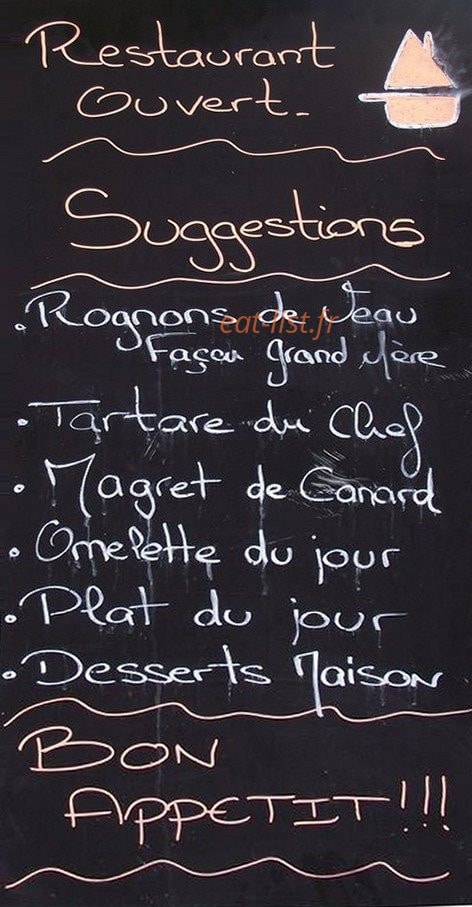 Restaurant
Ouvert.
Suggestions
• Rognons de Veau
Façon grand Mère
eat-list.fr
• Tartare du Chef
• Magret de Canard
• Omelette du jour
• Plat du jour
• Desserts Maison
BON
APPETIT!!!